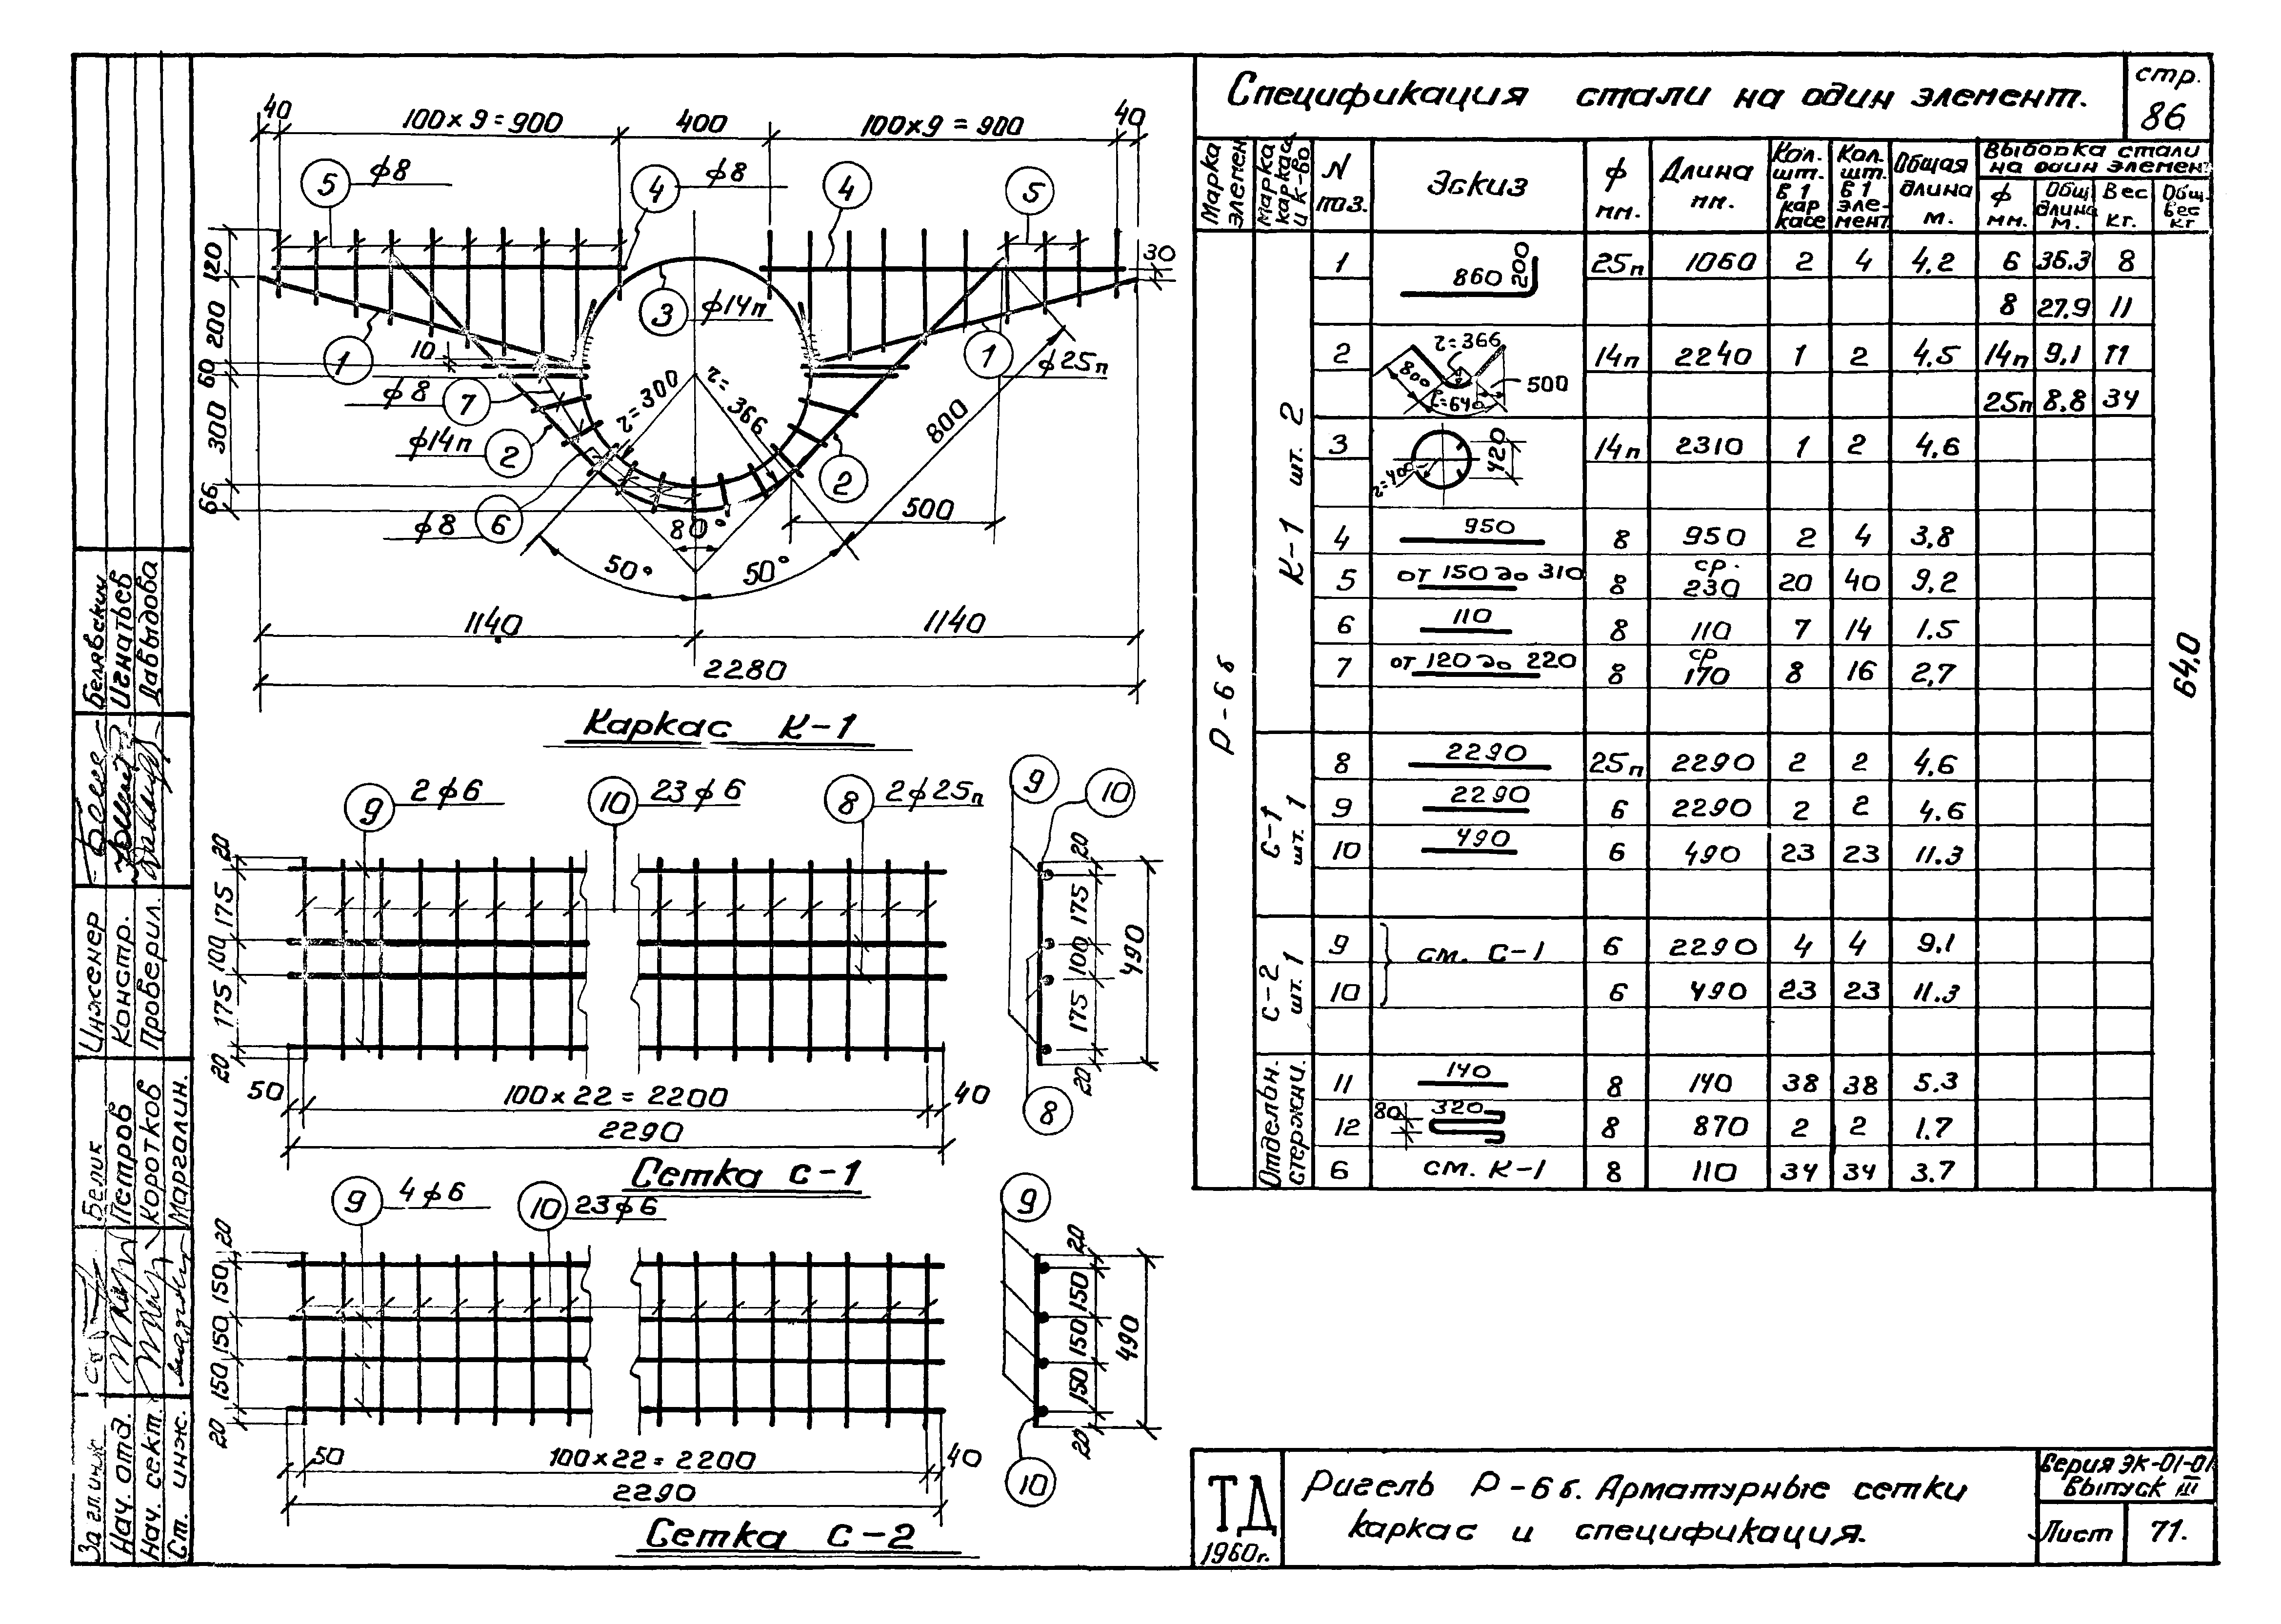 Спецификация стали на один элемент.
стр.
86
40
100 х 9 = 900
400
100х9 = 900
40
5 ф8
4 ф8
4
5
120
200
60
300
66
30
3 ф14п
1
10
1
ф25п
ф8 7
ф14п 2
2
r=300
r=366
800
500
ф8 6
80°
50°
50°
1140
1140
2280
Каркас К-1
9 2ф6
10 23ф6
8 2ф25п
9
10
20
175
100
175
20
20
175
100
175
20
490
50
100 х 22 = 2200
40
2290
8
Сетка С-1
9 4ф6
10 23ф6
9
20
150
150
150
20
20
150
150
150
20
490
50
100х22 = 2200
40
2290
10
Сетка С-2
Марка элемен
Марка каркаса и к-во
N поз.
Эскиз
ф мм.
Длина мм.
Кол. шт. в 1 каркасе
Кол. шт. в 1 элемент.
Общая длина м.
Выборка стали на один элемент
ф мм.
Общ. длина м.
Вес кг.
Общ. вес кг
Р-6б
К-1 шт. 2
1 860 200 25п 1060 2 4 4.2 6 36.3 8
8 27.9 11
2 r=366 800 ℓ=640 500 14п 2240 1 2 4.5 14п 9.1 11
25п 8.8 34
3 r=400 420 14п 2310 1 2 4.6
4 950 8 950 2 4 3.8
5 от 150 до 310 8 ср. 230 20 40 9.2
6 110 8 110 7 14 1.5
7 от 120 до 220 8 ср 170 8 16 2,7
64,0
С-1 шт. 1
8 2290 25п 2290 2 2 4.6
9 2290 6 2290 2 2 4.6
10 490 6 490 23 23 11.3
С-2 шт. 1
9 см. С-1 6 2290 4 4 9.1
10 6 490 23 23 11.3
Отдельн. стержни.
11 140 8 140 38 38 5.3
12 80 320 8 870 2 2 1.7
6 см. К-1 8 110 34 34 3.7
ТД
1960г.
Ригель Р-6б. Арматурные сетки
каркас и спецификация.
Серия ЭК-01-01
Выпуск III
Лист
71.
Инженер
Белявский
Констр.
Игнатьев
Проверил.
Давыдова
За гл. инж
Белик
Нач. отд.
Петров
Нач. сект.
Коротков
Ст. инж.
Марголин.